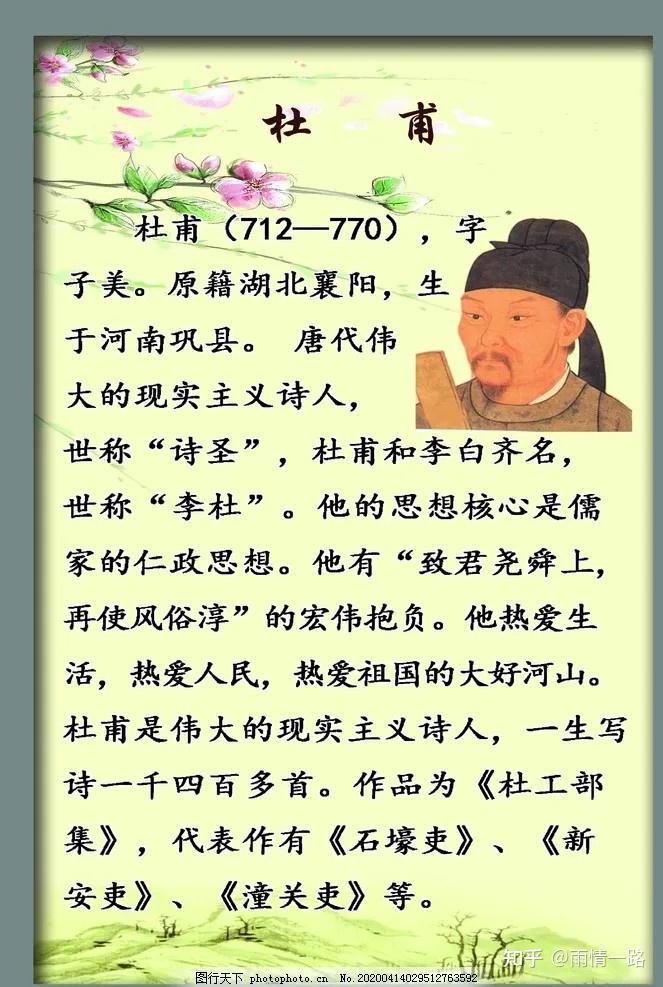 杜 甫
杜甫（712—770），字
子美。原籍湖北襄阳，生
于河南巩县。 唐代伟
大的现实主义诗人，
世称“诗圣”，杜甫和李白齐名，
世称“李杜”。他的思想核心是儒
家的仁政思想。他有“致君尧舜上，
再使风俗淳”的宏伟抱负。他热爱生
活，热爱人民，热爱祖国的大好河山。
杜甫是伟大的现实主义诗人，一生写
诗一千四百多首。作品为《杜工部
集》，代表作有《石壕吏》、《新
安吏》、《潼关吏》等。
知乎 @雨情一路
图行天下 photophoto.cn No.20200414029512763592